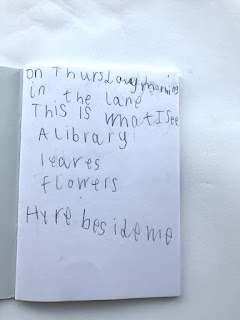 on Thursday morning
in the lane
This Is whatIsee
A library
leaves
flowers
Here beside me